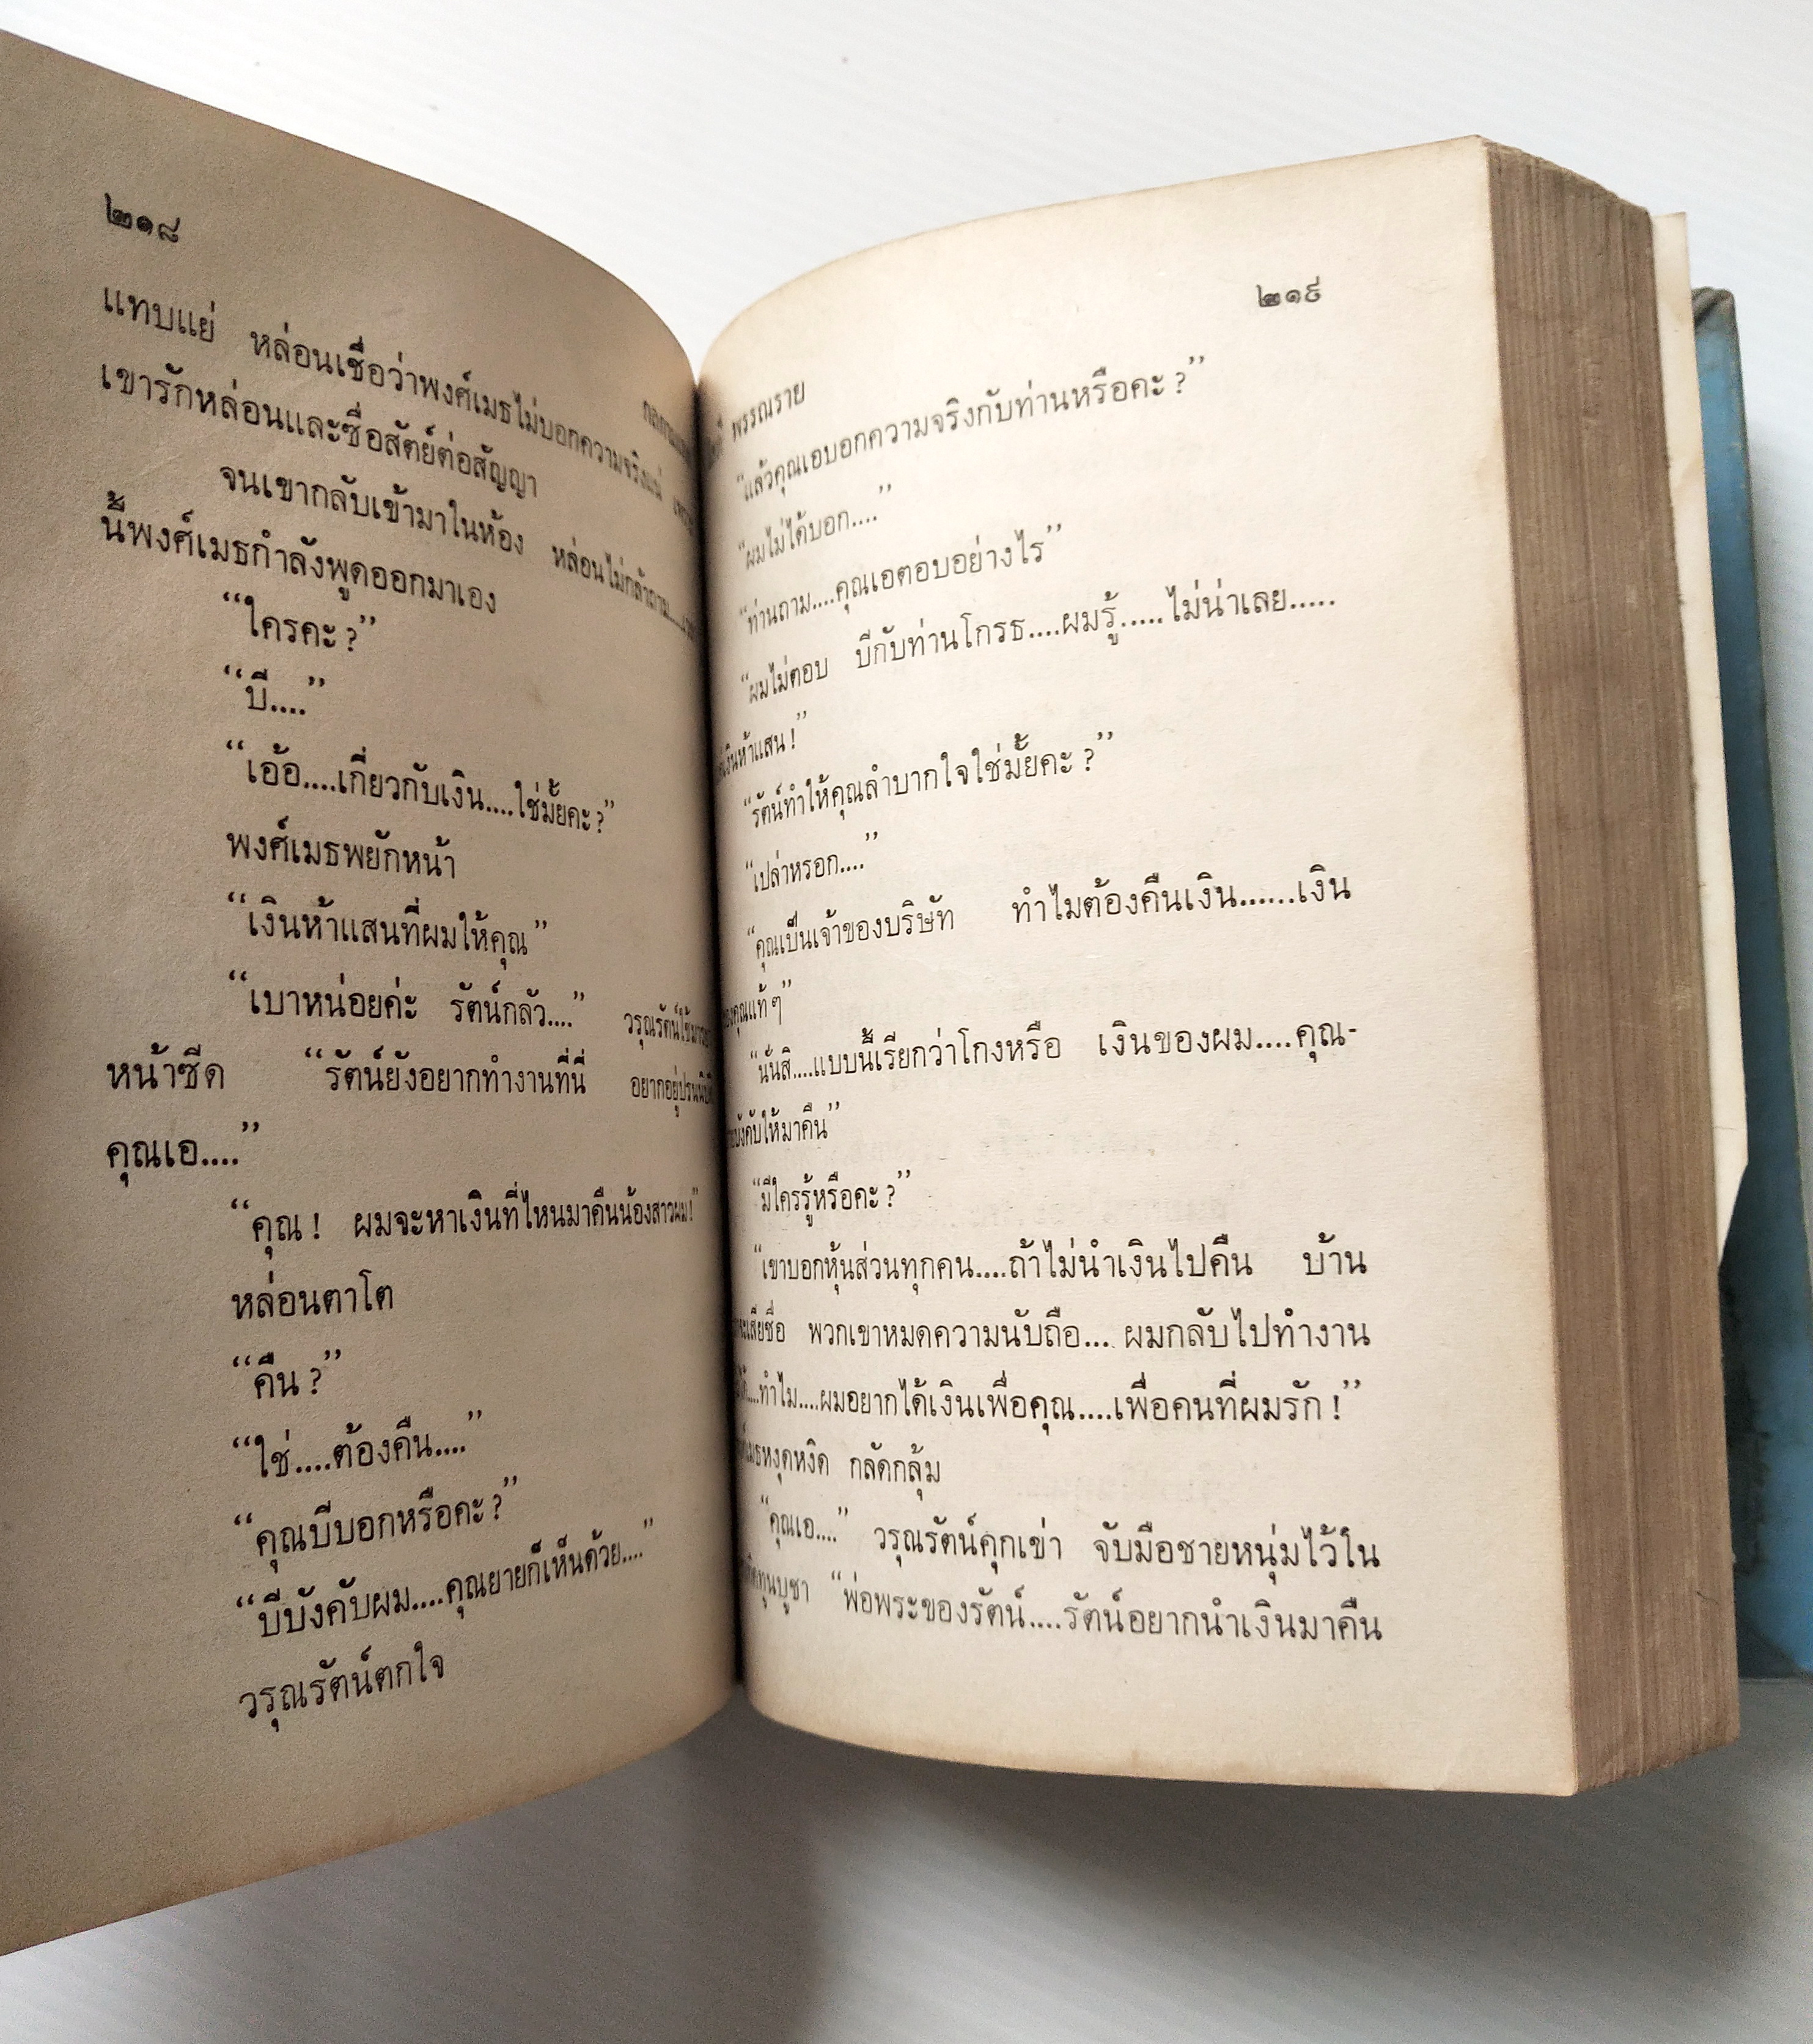 ๒๑๘
แทบแย่ หล่อนเชื่อว่าพงศ์เมธไม่บอกความจริงแน่
เขารักหล่อนและซื่อสัตย์ต่อสัญญา
จนเขากลับเข้ามาในห้อง หล่อนไม่กล้าถาม....
นี้พงศ์เมธกำลังพูดออกมาเอง
“ใครคะ ?”
“บี....”
“เอ้อ....เกี่ยวกับเงิน....ใช่มั้ยคะ ?”
พงศ์เมธพยักหน้า
“เงินห้าแสนที่ผมให้คุณ”
“เบาหน่อยค่ะ รัตน์กลัว....” วรุณรัตน์
หน้าซีด “รัตน์ยังอยากทำงานที่นี่
คุณเอ....”
“คุณ ! ผมจะหาเงินที่ไหนมาคืนน้องสาวผม !”
หล่อนตาโต
“คืน ?”
“ใช่....ต้องคืน....”
“คุณบีบอกหรือคะ ?”
“บีบังคับผม....คุณยายก็เห็นด้วย....”
วรุณรัตน์ตกใจ
๒๑๙
พรรณราย
“แล้วคุณเอบอกความจริงกับท่านหรือคะ ?”
“ผมไม่ได้บอก....”
“ท่านถาม....คุณเอตอบอย่างไร”
“ผมไม่ตอบ บีกับท่านโกรธ....ผมรู้.....ไม่น่าเลย.....
เงินห้าแสน !”
“รัตน์ทำให้คุณลำบากใจใช่มั้ยคะ ?”
“เปล่าหรอก....”
“คุณเป็นเจ้าของบริษัท ทำไมต้องคืนเงิน......เงิน
ของคุณแท้ ๆ”
“นั่นสิ....แบบนี้เรียกว่าโกงหรือ เงินของผม....คุณ-
บังคับให้มาคืน”
“มีใครรู้หรือคะ ?”
“เขาบอกหุ้นส่วนทุกคน....ถ้าไม่นำเงินไปคืน บ้าน
เสียชื่อ พวกเขาหมดความนับถือ... ผมกลับไปทำงาน
....ทำไม....ผมอยากได้เงินเพื่อคุณ....เพื่อคนที่ผมรัก !”
หงุดหงิด กลัดกลุ้ม
“คุณเอ....” วรุณรัตน์คุกเข่า จับมือชายหนุ่มไว้ใน
“พ่อพระของรัตน์....รัตน์อยากนำเงินมาคืน